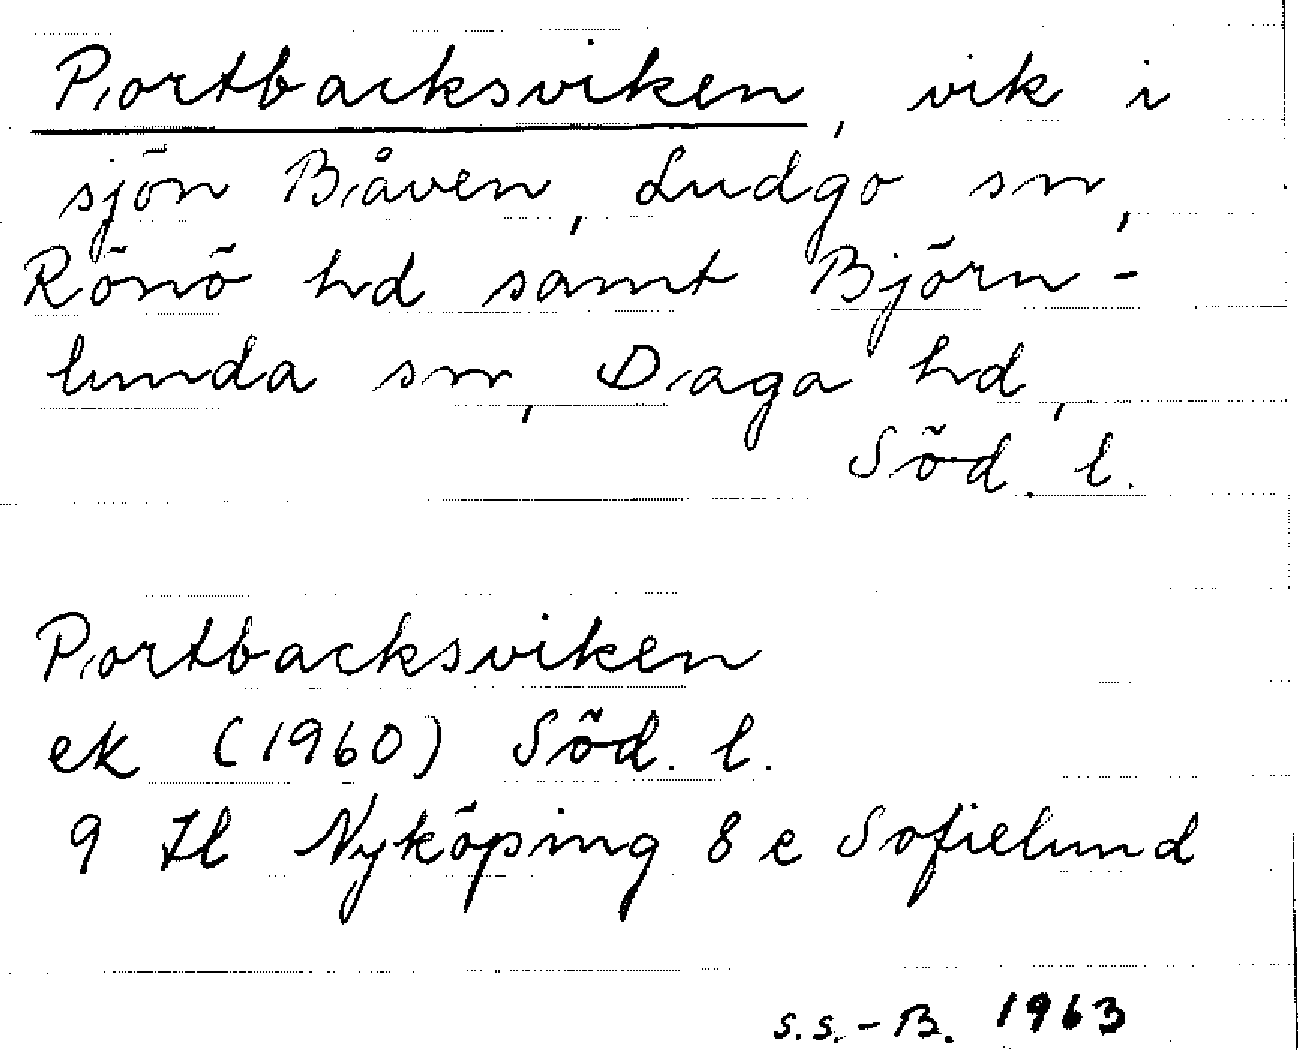 Portbacksviken, vik i
sjön Båven, Ludgo sn,
Rönö hd samt Björn-
lunda sn, Daga hd,
Söd. l.
Portbacksviken
ek (1960) Söd. l.
9 Il Nyköping 8 e Sofielund
S.S.-B. 1963